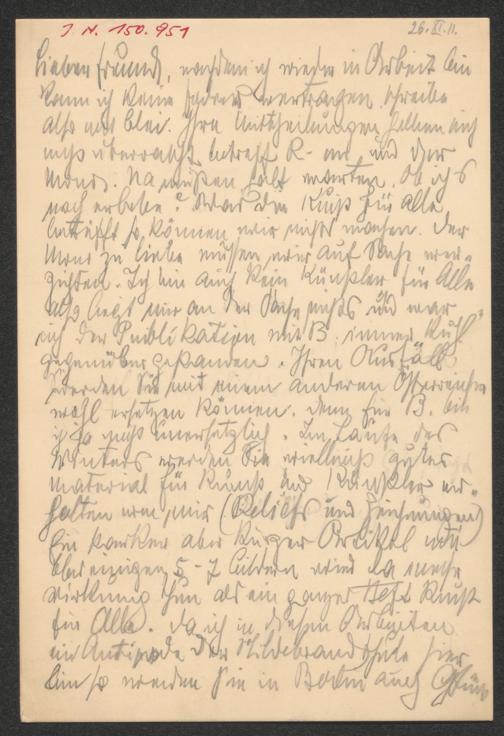 J. N. 150.951
26. XI. 11.
Lieber Freund, nachdem ich wieder in Arbeit bin
kann ich keine Feder vertragen, schreibe
also mit Blei. Ihre Mittheilungen haben mich
nicht überrascht betreff R- und der
Mono. Na müssen halt warten. Ob ich's
noch erlebe? Was die Kunst für Alle
betrifft so können wir nichts machen. Der
Mono zu Liebe müssen wir auf Sache ver-
zichten. Ich bin auch kein Künstler für Alle
also liegt mir an der Sache nichts und war
ich der Publikation mit B. immer kühl
gegenüber gestanden. Ihren Ausfall
werden Sie mit einem anderen Österreicher
wohl ersetzen können. denn für B. bin
ich ja nicht unersetzlich. Im Laufe des
Winters werden Sie vielleicht gutes
material für Kunst und Künstler er-
halten von mir (Reliefs und Zeichnungen)
Ein starker aber kurzer Artikel mit
einigen 5-7 Bildern wird da mehr
Wirkung thun als ein ganzes Heft Kunst
für Alle. da ich in diesen Arbeiten
ein Antipode der Hildebrandschule hier
bin so werden Sie in Berlin auch